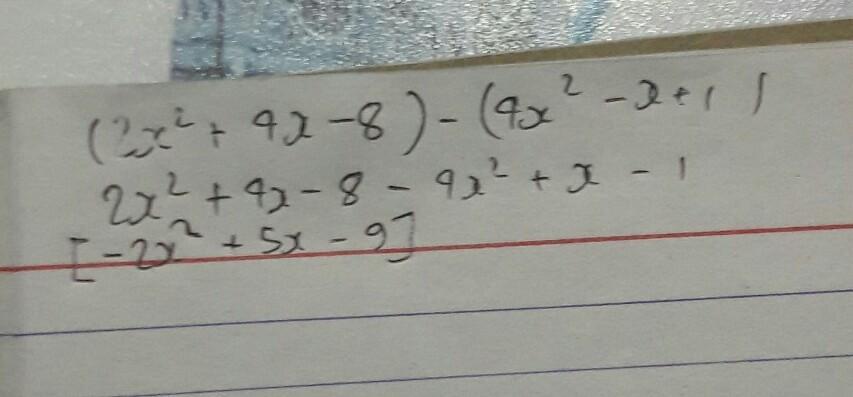 (2x² + 4x - 8) - (4x² - x + 1)
2x² + 4x - 8 - 4x² + x - 1
[-2x² + 5x - 9]